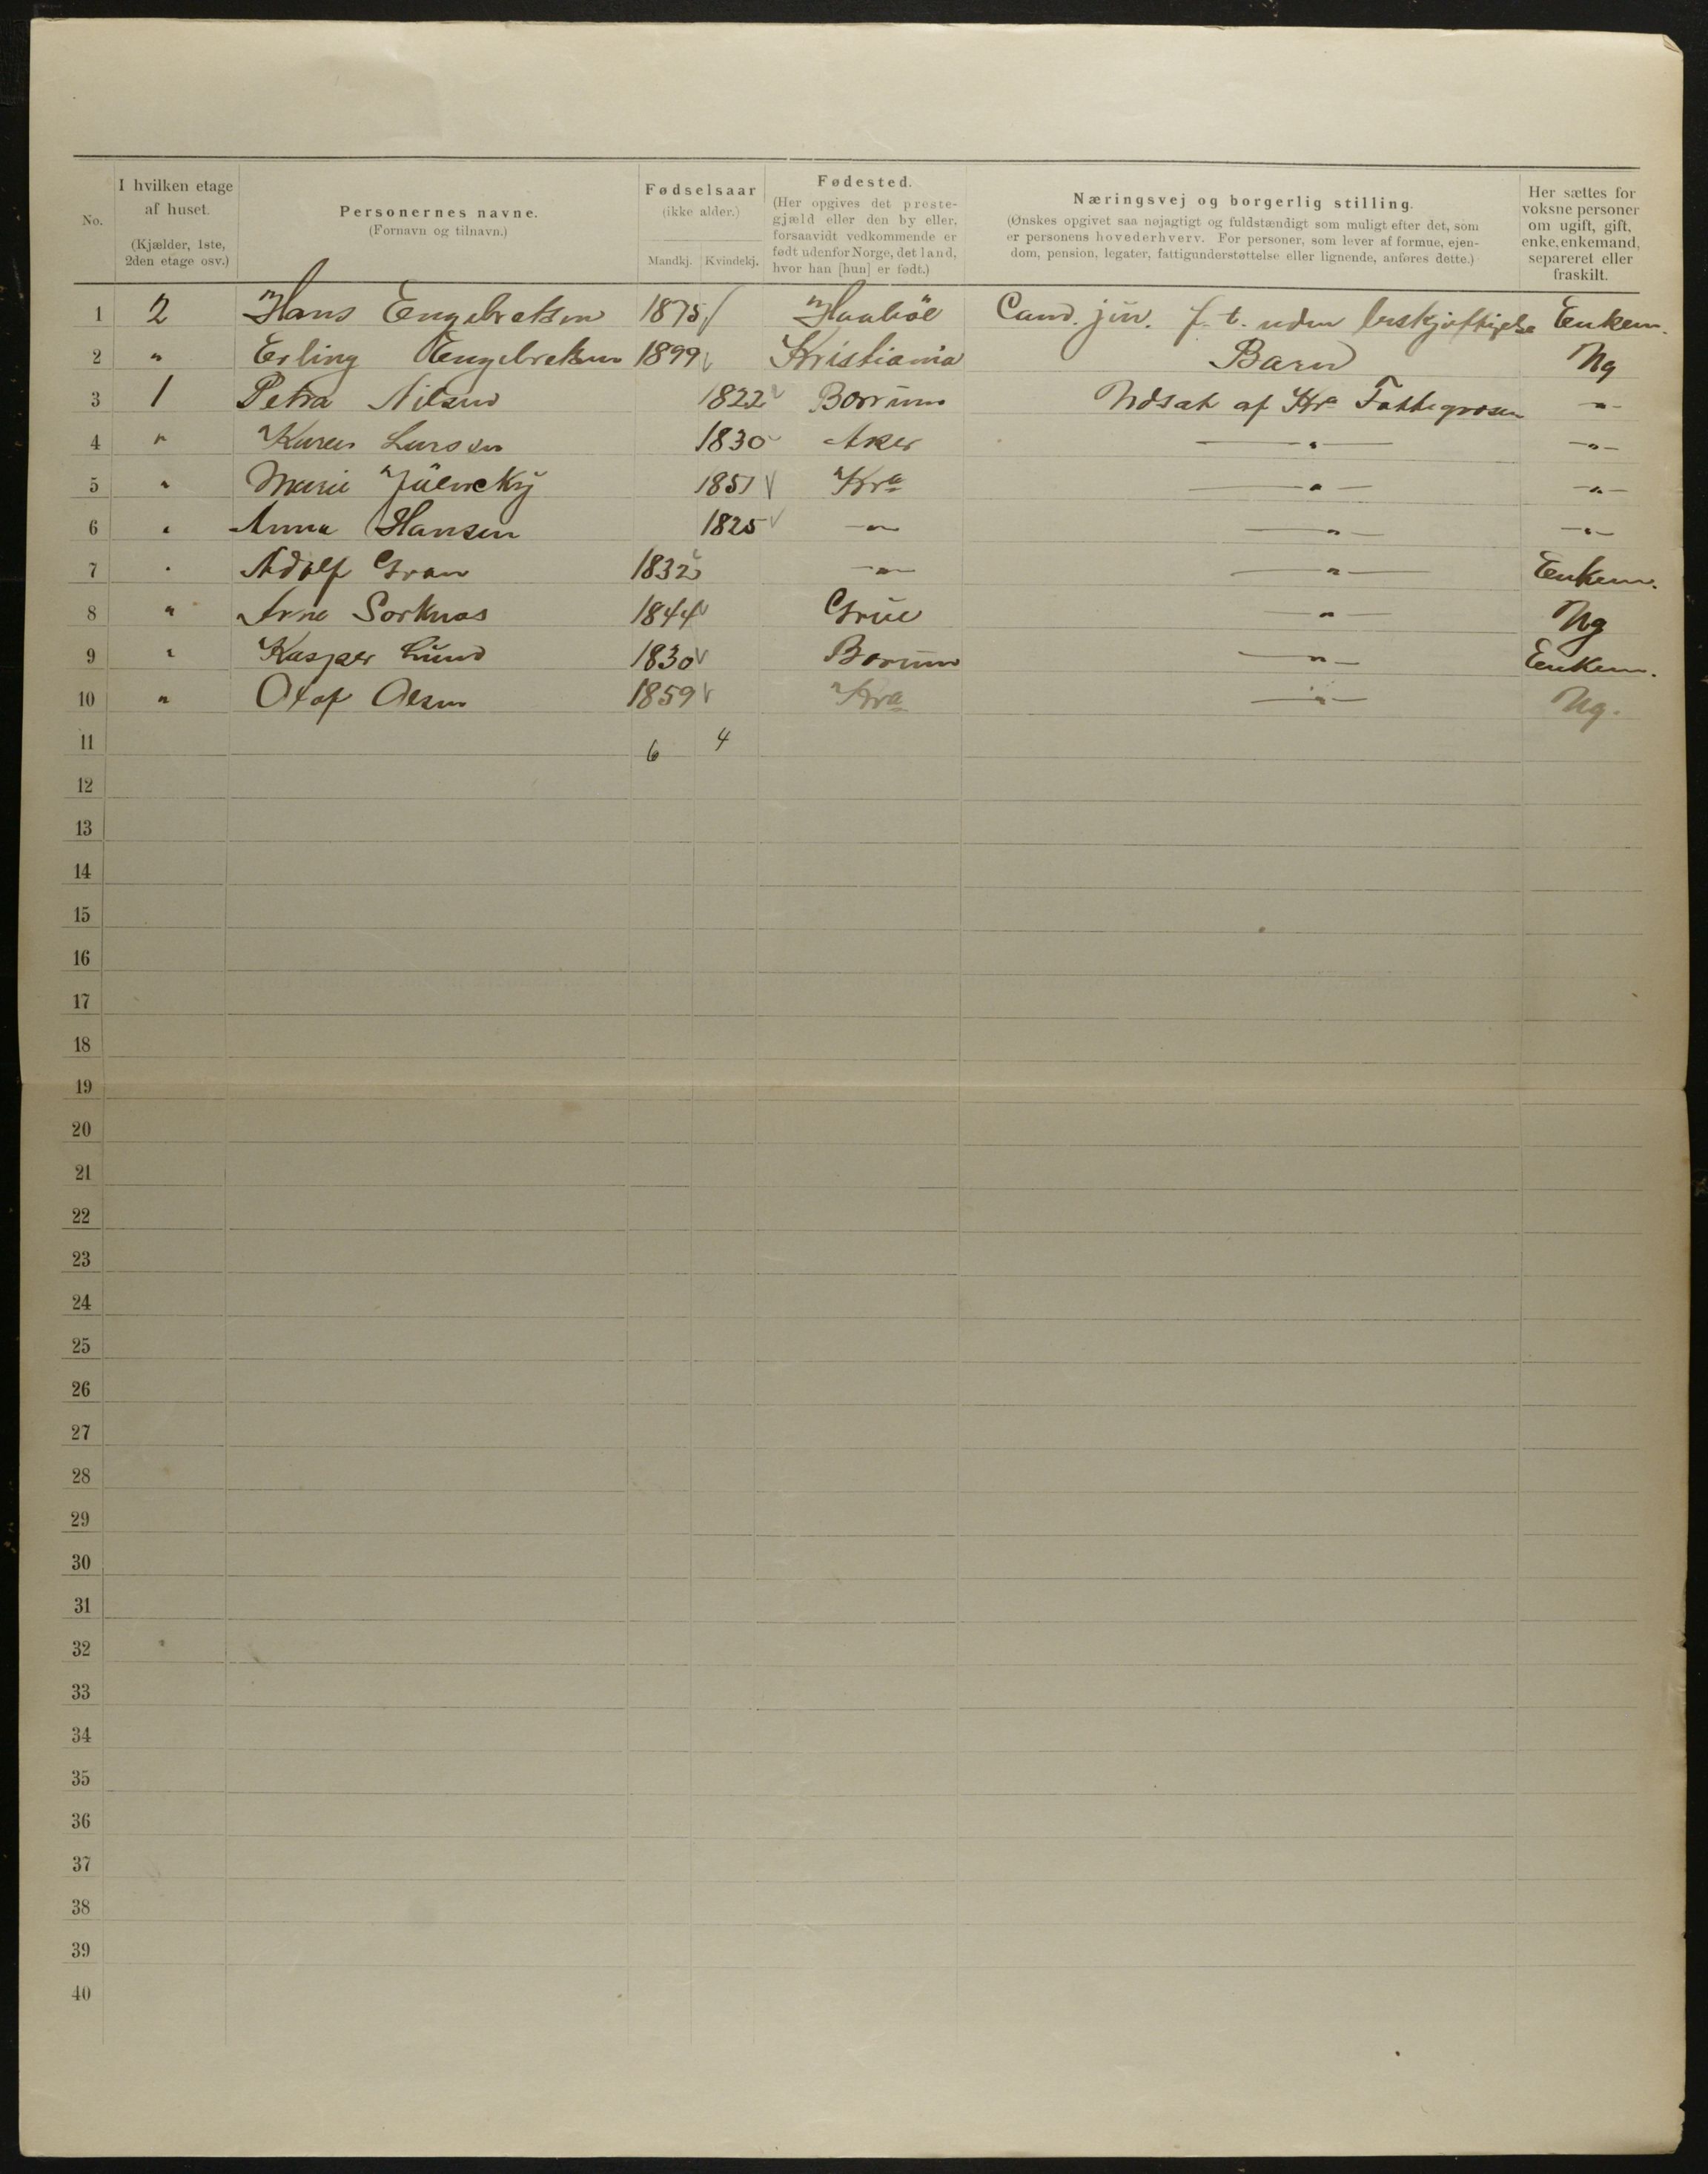 No.
I hvilken etage af huset. (Kjælder, 1ste, 2den etage osv.)
Personernes navne. (Fornavn og tilnavn.)
Fødselsaar (ikke alder.) Mandkj. Kvindekj.
Fødested. (Her opgives det prestegjæld eller den by eller, forsaavidt vedkommende er født udenfor Norge, det land, hvor han [hun] er født.)
Næringsvej og borgerlig stilling. (Ønskes opgivet saa nøjagtigt og fuldstændigt som muligt efter det, som er personens hovederhverv. For personer, som lever af formue, ejendom, pension, legater, fattigunderstøttelse eller lignende, anføres dette.)
Her sættes for voksne personer om ugift, gift, enke, enkemand, separeret eller fraskilt.
1 2 Hans Engebretsen 1875 Haabøl Cand. jur. f. t. uden beskjæftigelse Enkem.
2 " Erling Engebretsen 1899 Kristiania Barn Ug
3 1 Petra Nilsen 1822 Bærum Udsat af Kra Fattigvæsen - " -
4 " Karen Larssen 1830 Aker - " - - " -
5 " Marie 1851 Kra - " - - " -
6 " Anna Hansen 1825 - " - - " - - " -
7 " Adolf Gran 1832 - " - - " - Enkem.
8 " Arne Sorknæs 1844 Grue - " - Ug
9 " Kasper Lund 1830 Bærum - " - Enkem.
10 " Olaf Olsen 1859 Kra - " - Ug.
11 6 4
12
13
14
15
16
17
18
19
20
21
22
23
24
25
26
27
28
29
30
31
32
33
34
35
36
37
38
39
40